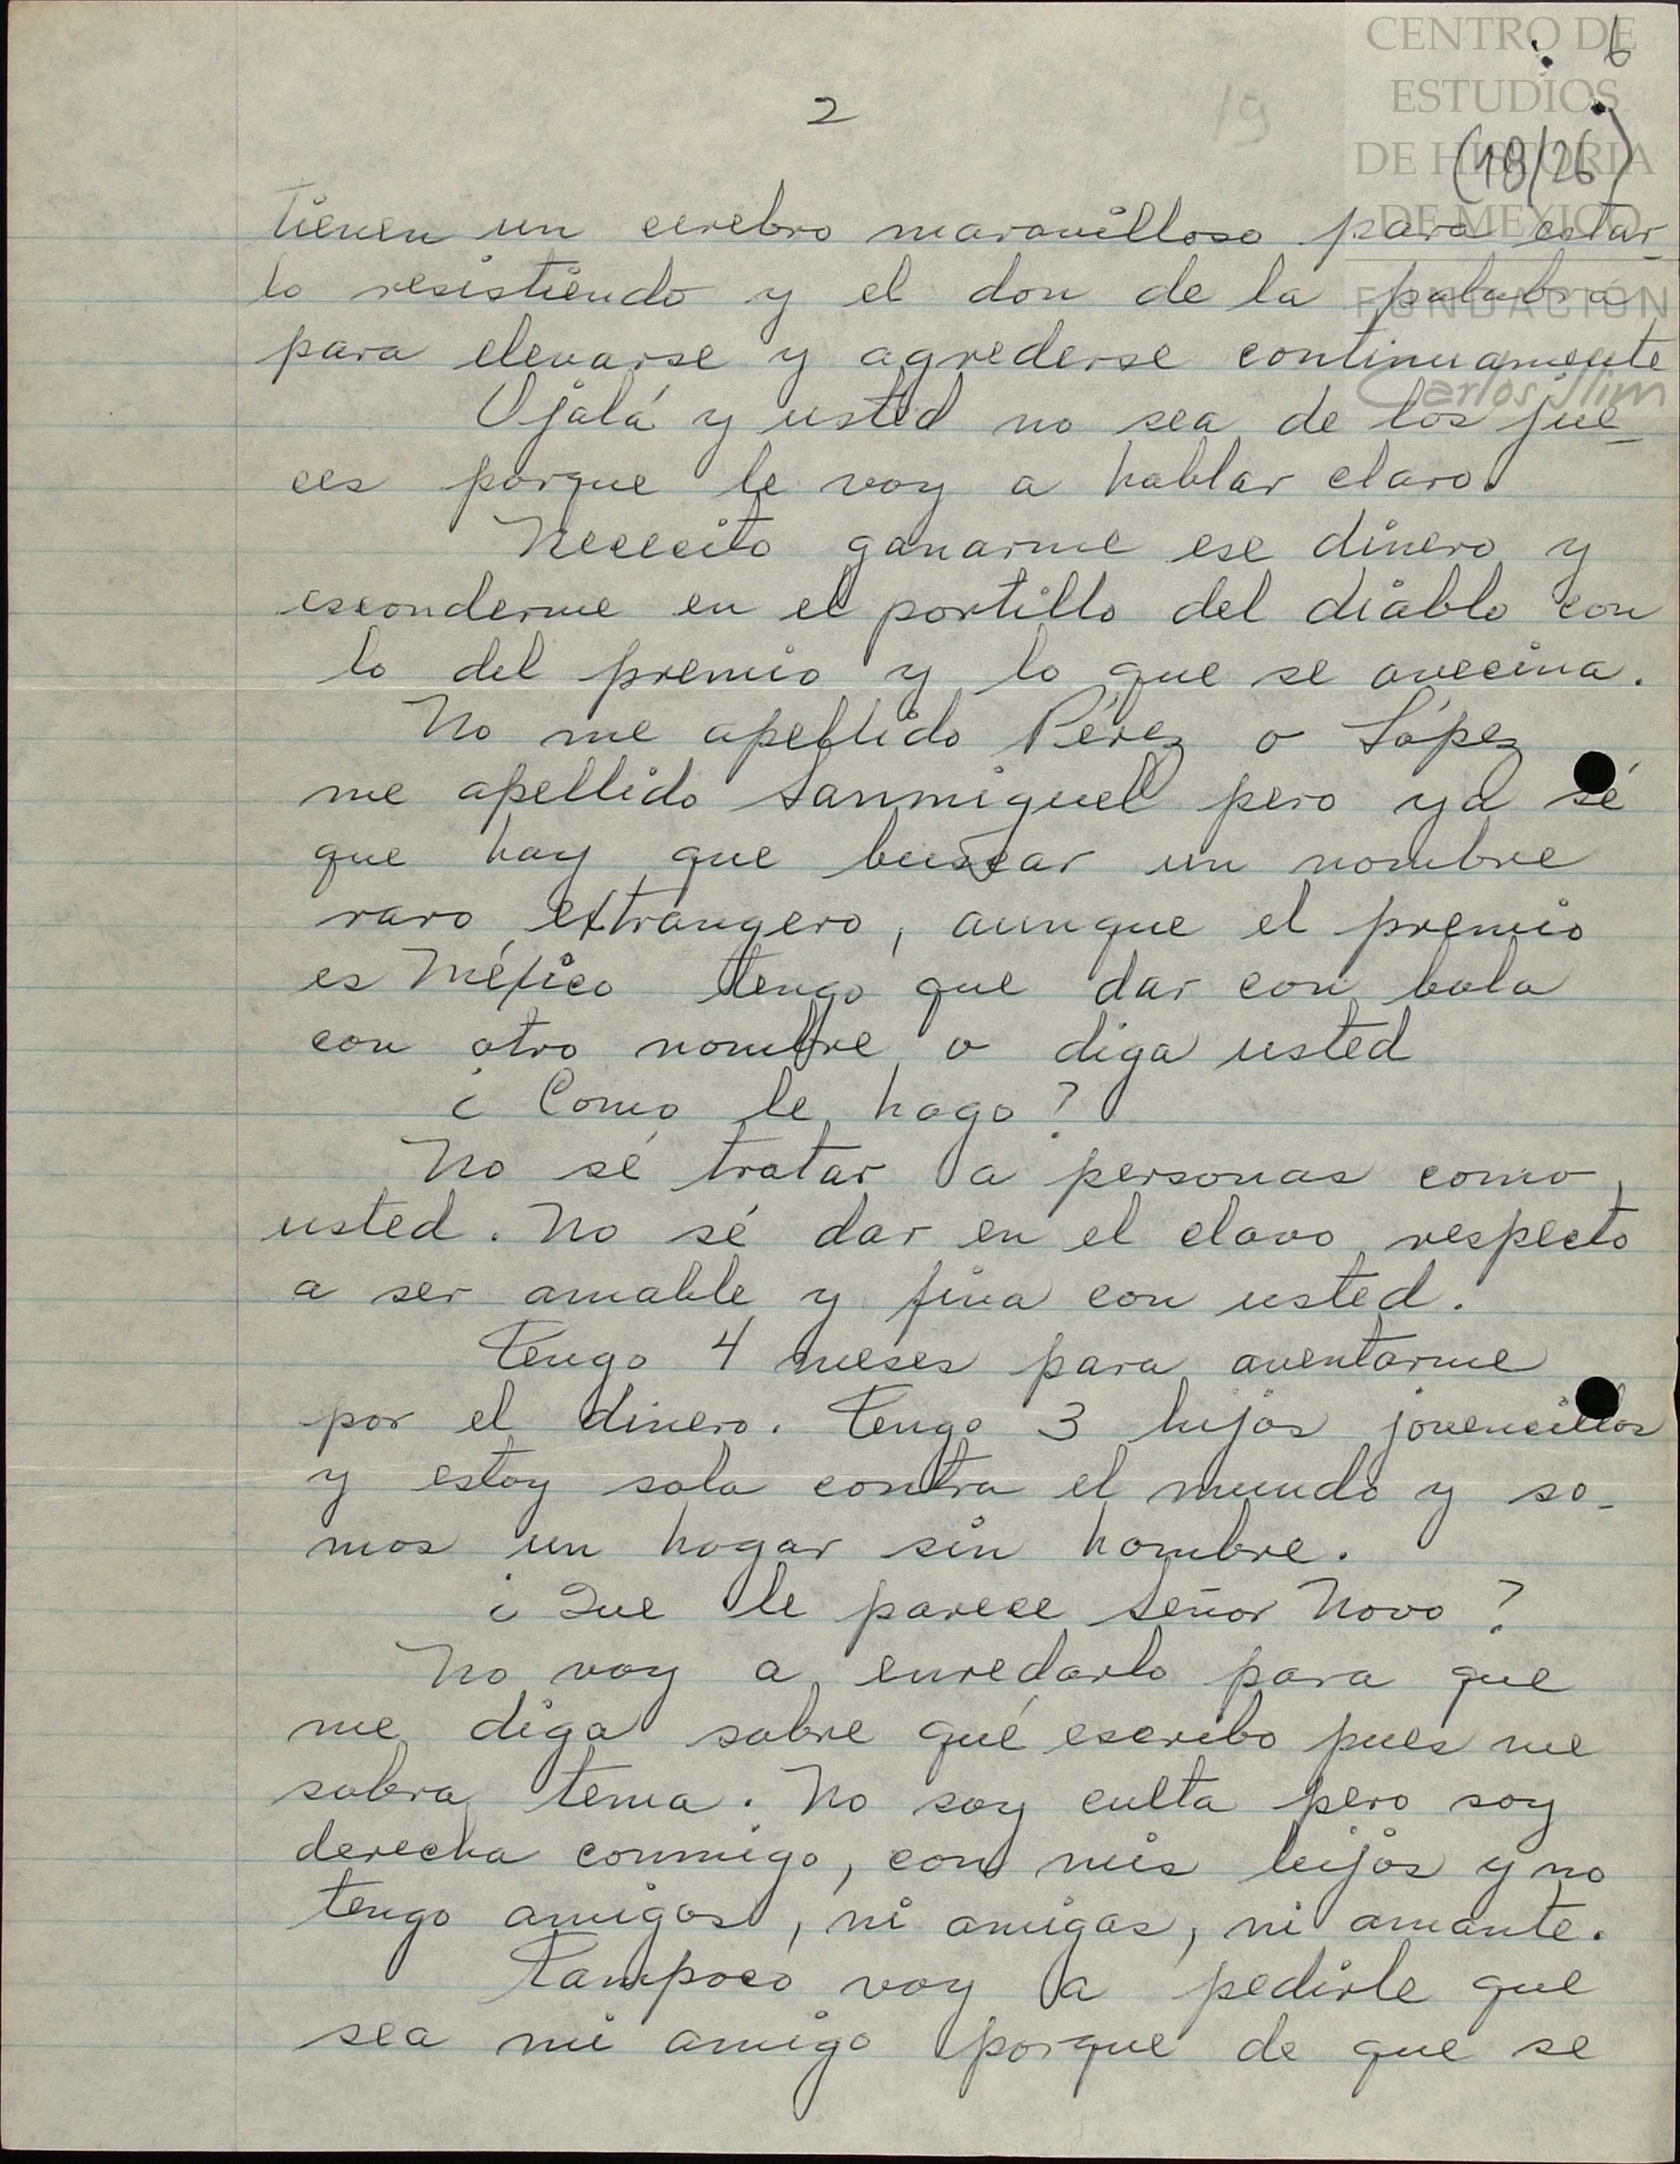 CENTRO DE
ESTUDIOS
DE HISTORIA
DE MEXICO
FUNDACIÓN
Carlos Slim
6
2
19
(18/26)
tienen un cerebro maravilloso para estar_
lo resistiendo y el don de la palabra
para elevarse y agrederse continuamente
Ojalá y usted no sea de los jue_
ces porque le voy a hablar claro.
Nececito ganarme ese dinero y
esconderme en el portillo del diablo con
lo del premio y lo que se avecina.
No me apellido Pérez o López
me apellido Sanmiguel pero ya sé
que hay que buscar un nombre
raro, extrangero, aunque el premio
es México tengo que dar con bola
con otro nombre o diga usted
¿Como le hago?
No sé tratar a personas como
usted. No sé dar en el clavo respecto
a ser amable y fina con usted.
Tengo 4 meses para aventarme
por el dinero. Tengo 3 hijos jovencillos
y estoy sola contra el mundo y so-
mos un hogar sin hombre.
¿Que le parece Señor Novo?
No voy a enredarlo para que
me diga sobre qué escribo pues me
sobra tema. No soy culta pero soy
derecha conmigo, con mis hijos y no
tengo amigos, ni amigas, ni amante.
Tampoco voy a pedirle que
sea mi amigo porque de que se